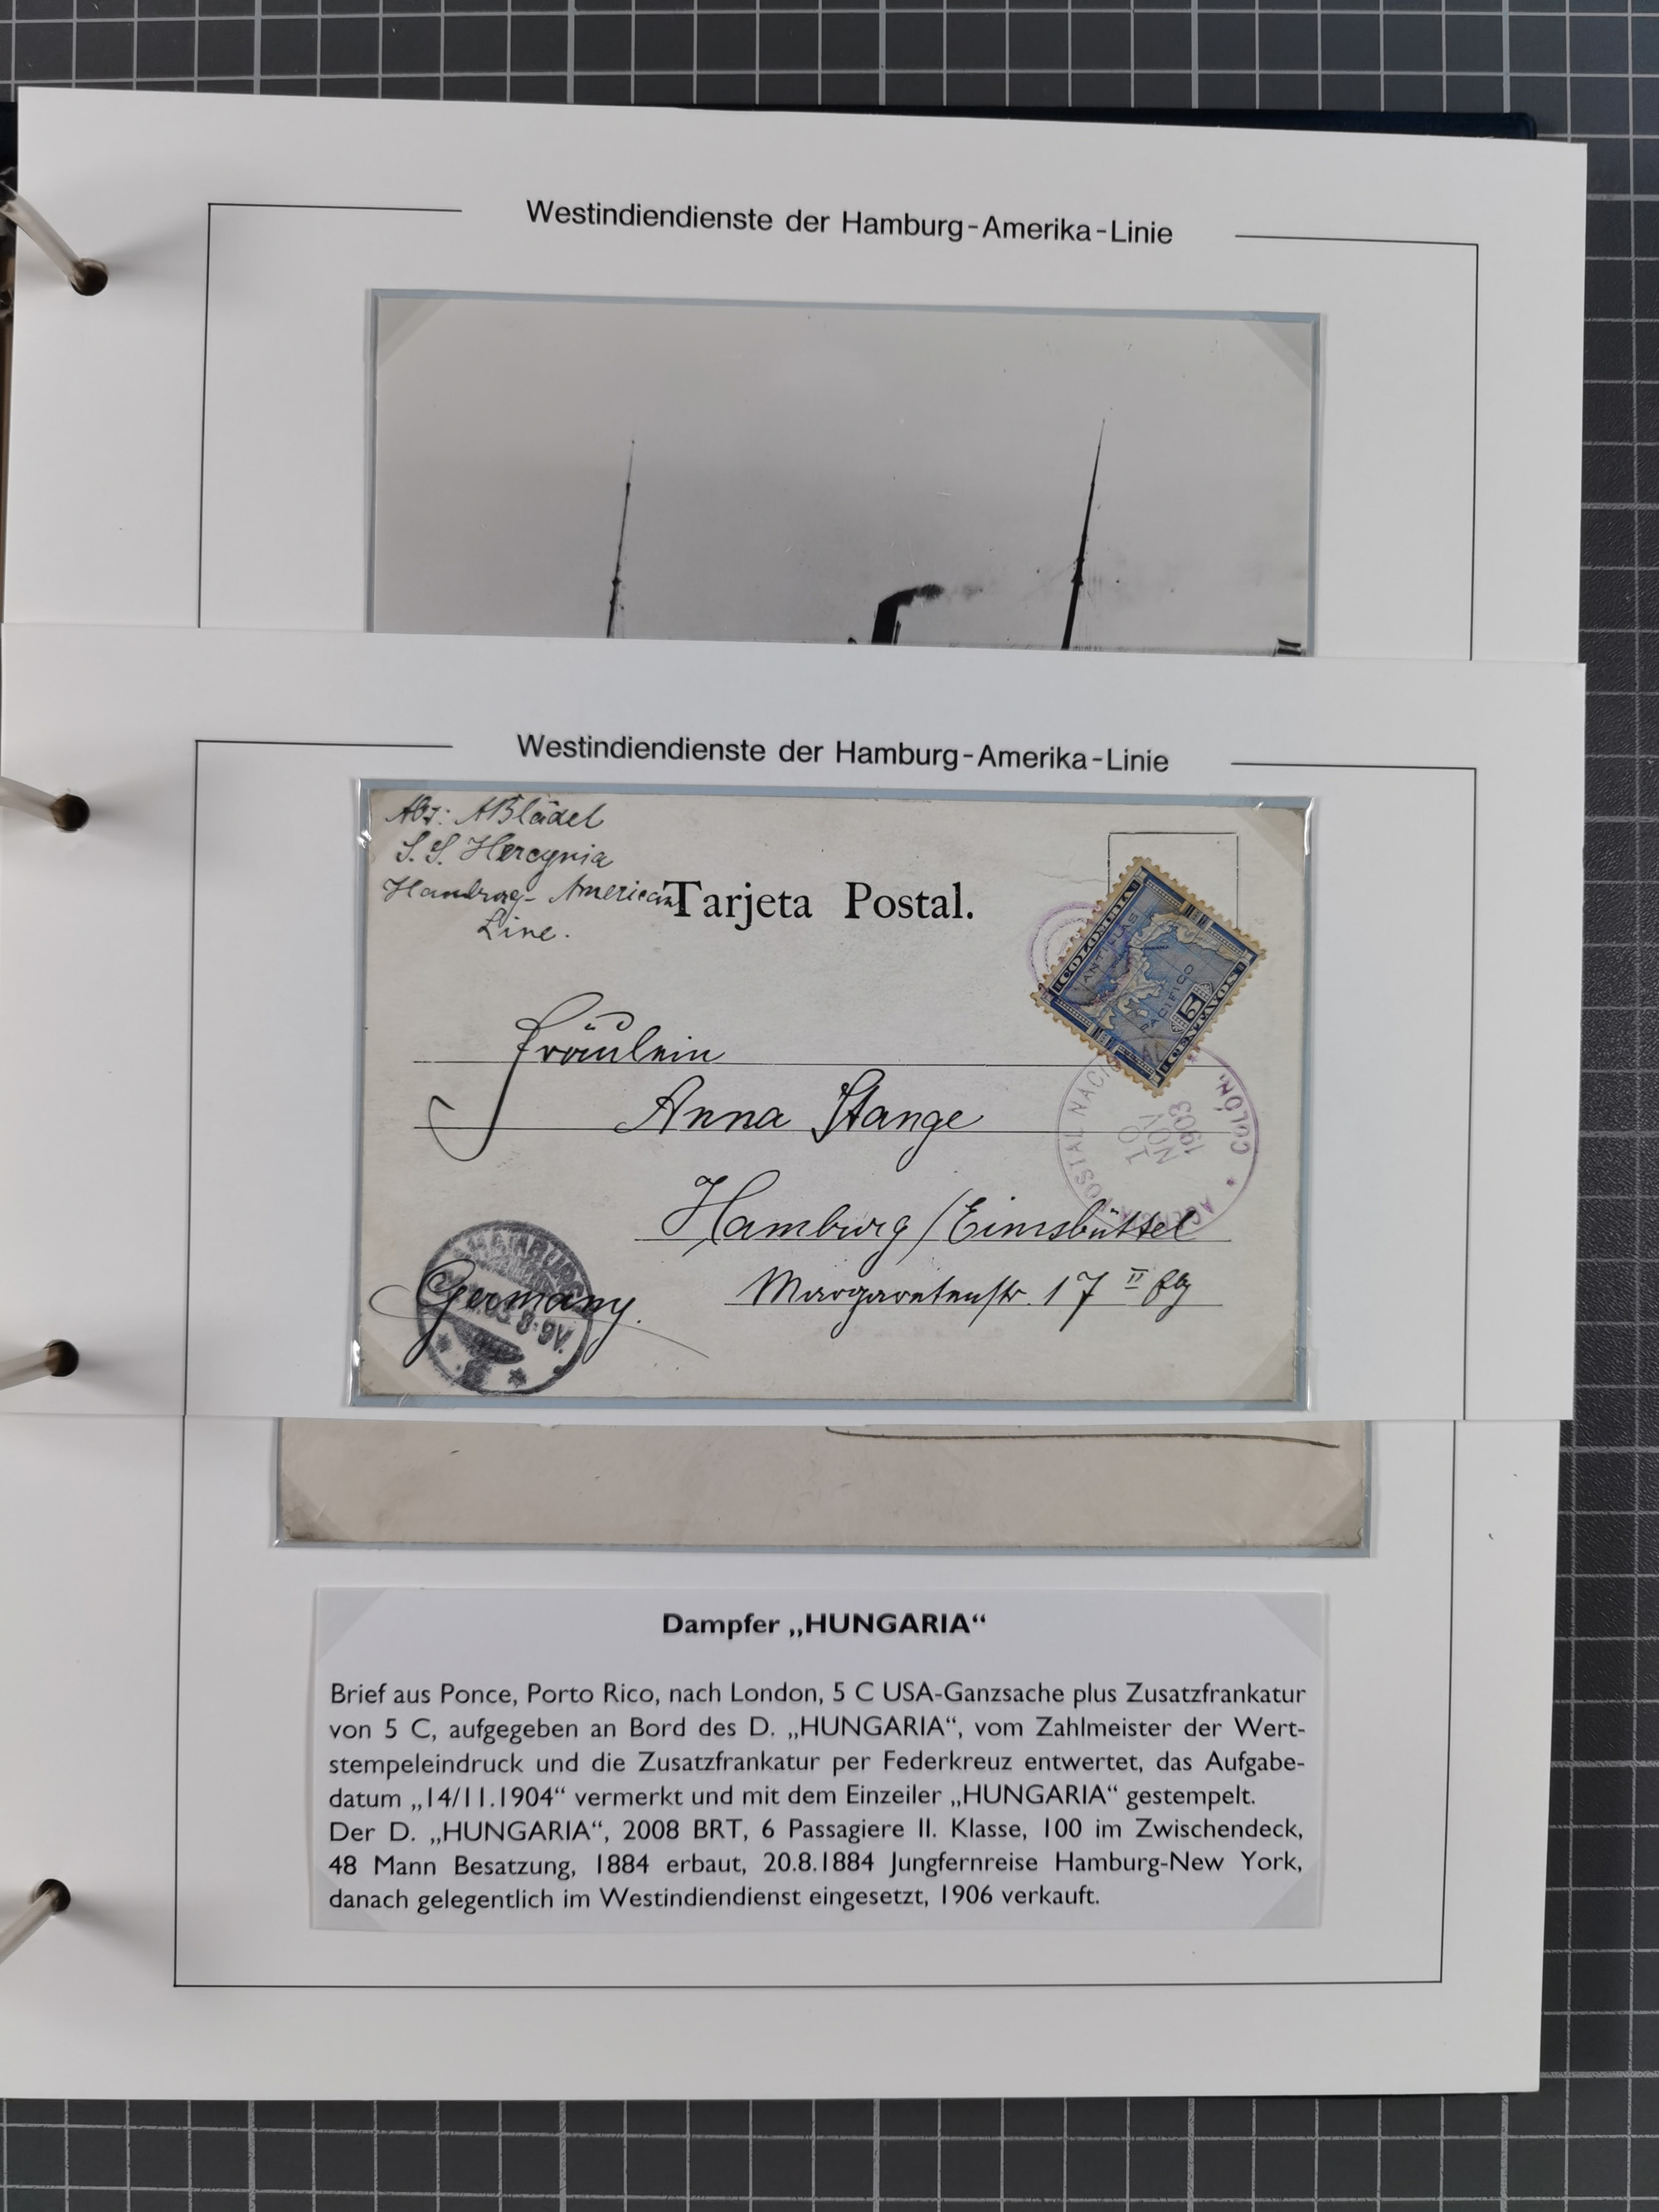 Westindiendienste der Hamburg-Amerika-Linie
Westindiendienste der Hamburg-Amerika-Linie
Abs: A Blädel
S. S. Hercynia
Hamburg-American
Line.
Tarjeta Postal.
COLOMBIA
ANTILLAS
PACIFICO
5
CENTAVOS
Fräulein
Anna Stange
Hamburg/Eimsbüttel
Margaretenstr. 17 II
Germany.
AGENCIA POSTAL NACIONAL
COLON.
10
NOV
1903
HAMBURG
8-9V.
Dampfer „HUNGARIA“
Brief aus Ponce, Porto Rico, nach London, 5 C USA-Ganzsache plus Zusatzfrankatur
von 5 C, aufgegeben an Bord des D. „HUNGARIA“, vom Zahlmeister der Wert-
stempeleindruck und die Zusatzfrankatur per Federkreuz entwertet, das Aufgabe-
datum „14/11.1904“ vermerkt und mit dem Einzeiler „HUNGARIA“ gestempelt.
Der D. „HUNGARIA“, 2008 BRT, 6 Passagiere II. Klasse, 100 im Zwischendeck,
48 Mann Besatzung, 1884 erbaut, 20.8.1884 Jungfernreise Hamburg-New York,
danach gelegentlich im Westindiendienst eingesetzt, 1906 verkauft.